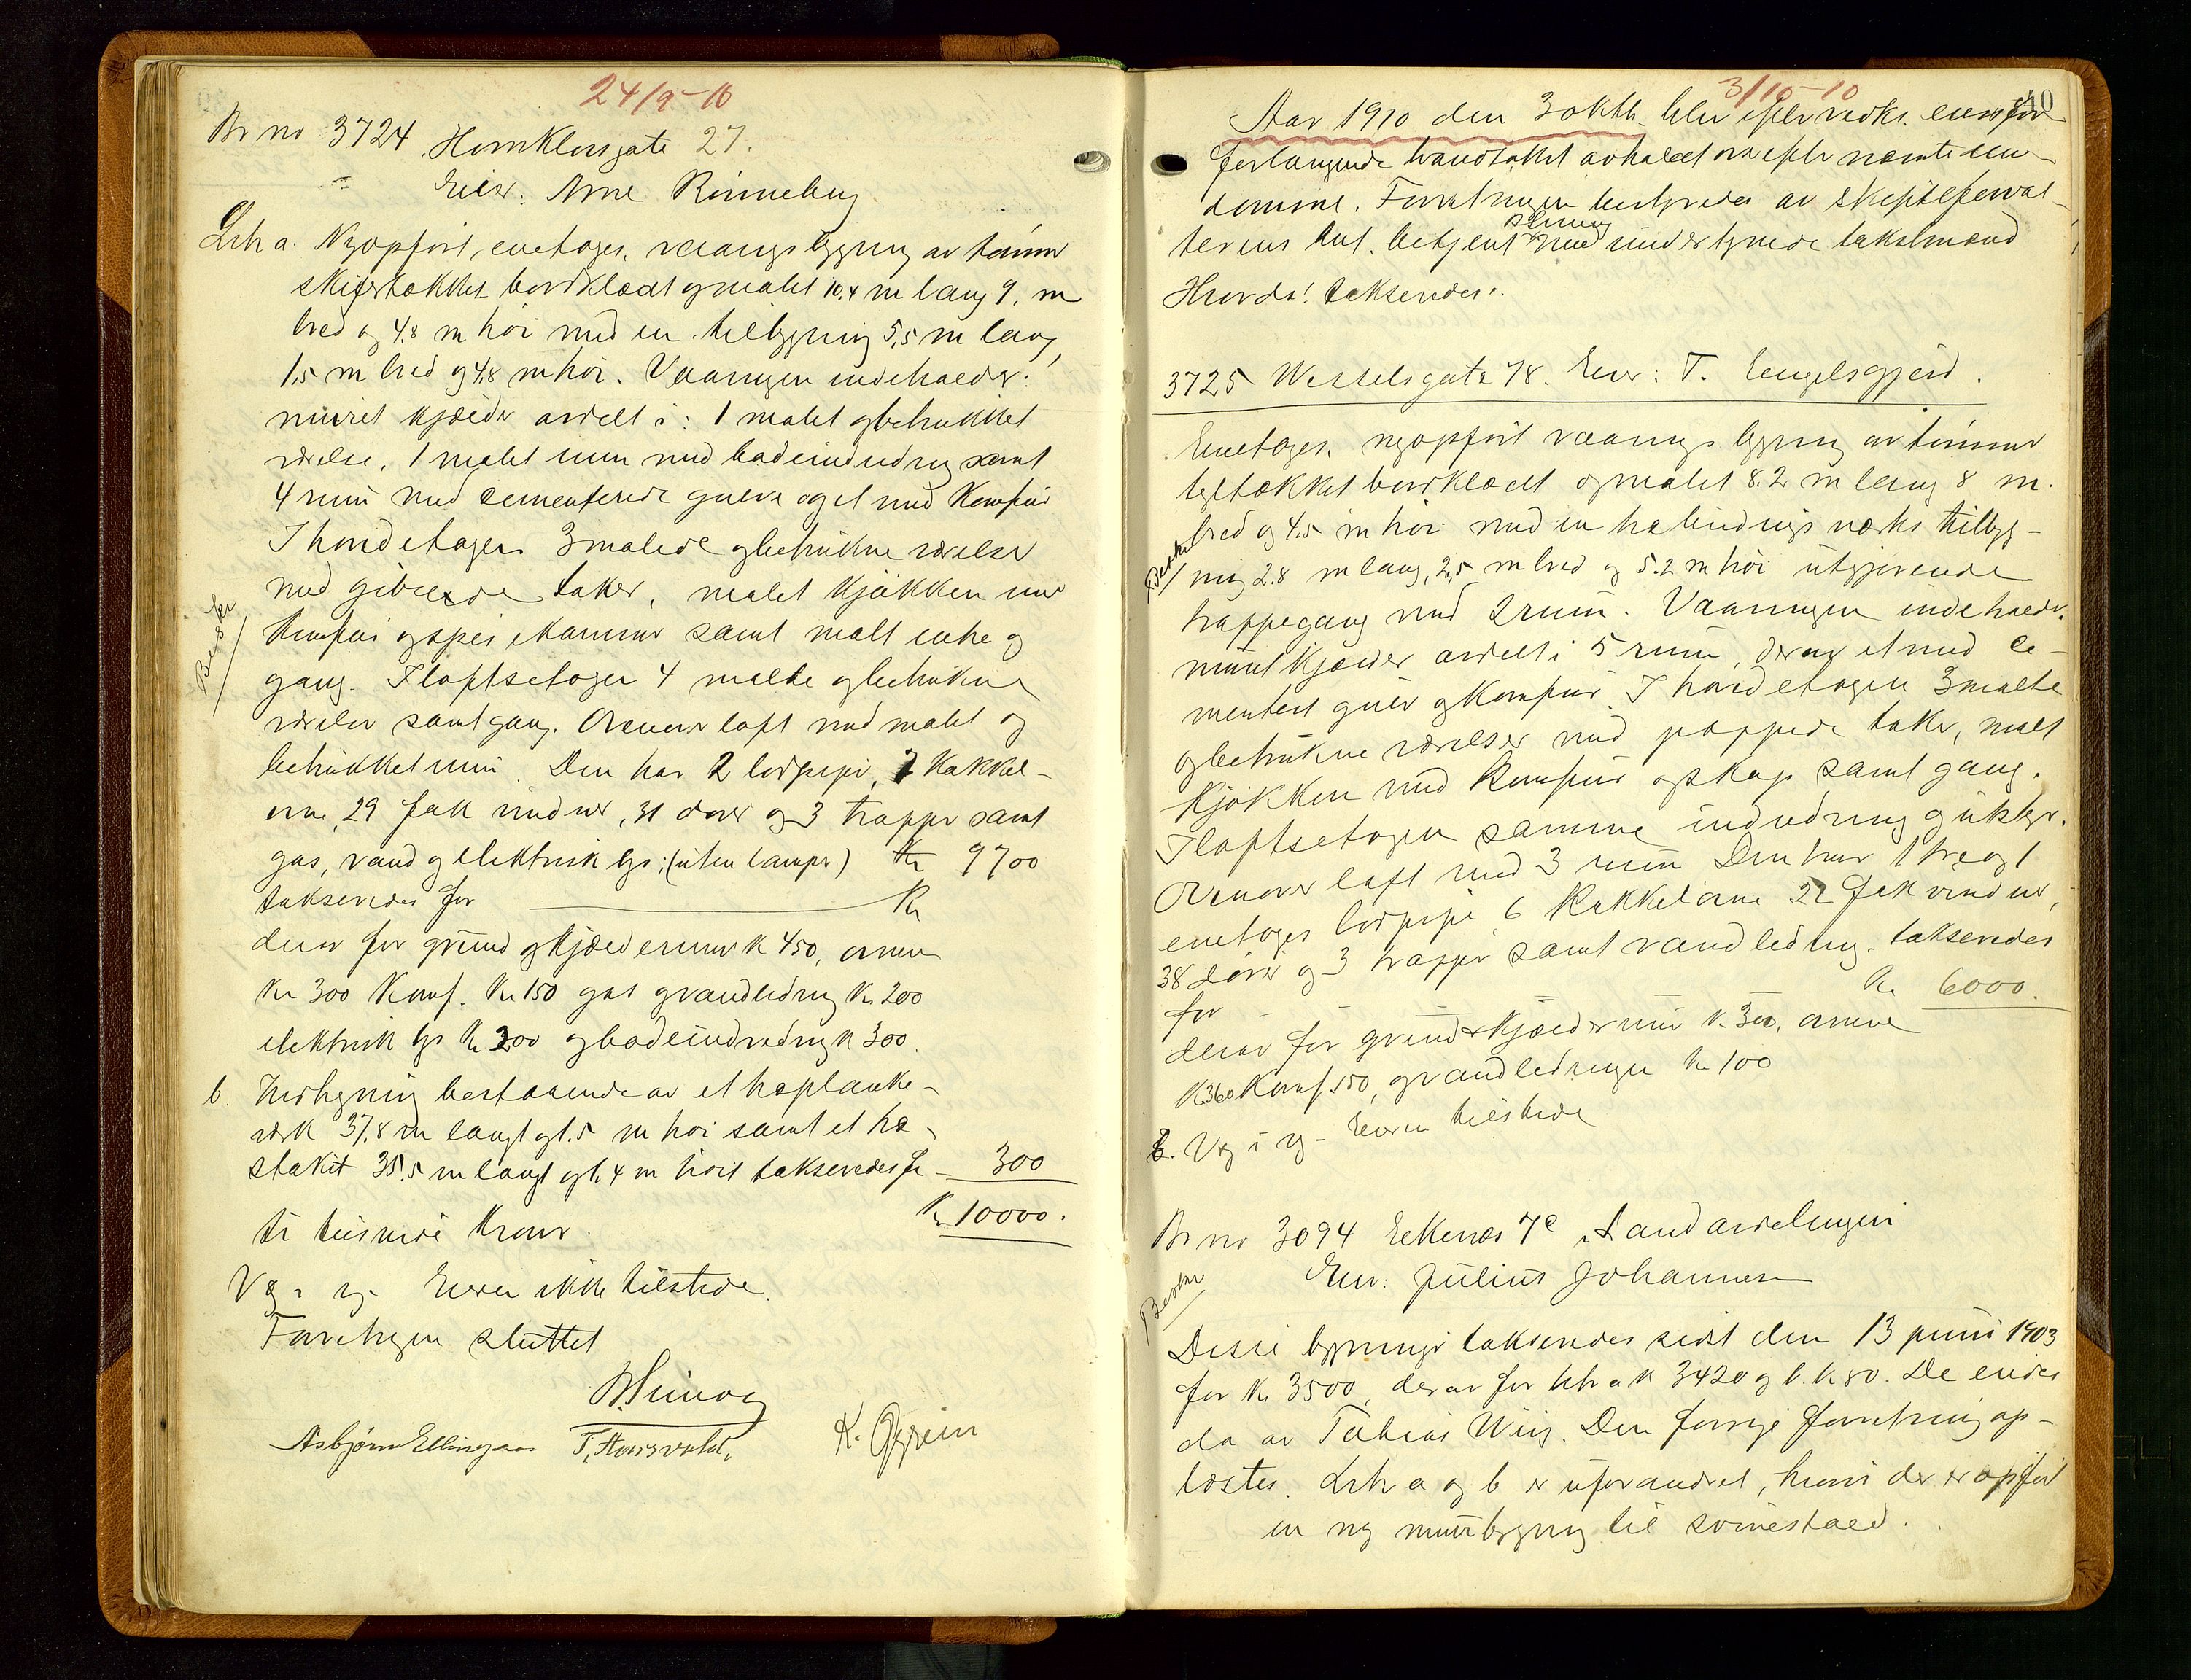 24/9-10
Br no 3724 Hornklovsgate 27.
Eier: Arne Rönneberg
Litr a. Nyopfört, enetages vaaningsbygning av tömmer
skifertækket bordklædt og malet 10,4 m lang 9, m
bred og 4,8 m höi med en tilbygning 5,5 m lang,
1,5 m bred og 4,8 m höi. Vaaningen indeholder:
muret kjælder avdelt i: 1 malet og betrukket
værelse, 1 malet rum med badeindredning samt
4 rum med cementerede gulve og et med Komfur
I hovedetagen 3 malede og betrukne værelser
med gibsede taker, malet kjökken med
Komfur og spiskammer samt malt entre og
gang. I loftsetagen 4 malte og betrukne
værelser samt gang. Ovenover loft med malet og
betrukket rum. Den har 2 lodpiper, 7 Kakkel-
ovne, 29 fak vinduer, 31 dörer og 3 trapper samt
gas, vand og elektrisk lys; (uten lamper) Kr 9700
takseredes for Kr
derav for grund og kjældermur k 450, ovnene
Kr 300 Komf. Kr 150 gas og vandledning Kr 200
elektrisk lys Kr 200 og badeindredning k 300.
b. Indhegning bestaaende av et træplanke-
verk 37,8 m langt og 1.5 m höi samt et træ-
stakit 35,5 m langt og 1,4 m höit takseredes for 300
Kr 10000.
ti tusinde Kroner.
V8 i 1/2 Eieren ikke tilstede.
Forretningen sluttet
Asbjørn Ellingsen T. Hausvold. K. Oppen
Besøkt
3/10-10
40
Aar 1910 den 3 oktbr. blev efter vedk. eieres for-
forlangende brandtakst avholdt over efter nævnte eien-
domme. Forretningen bestyredes av skifteforval-
terens aut. betjent med undertegnede takstmænd
Hvorda! takseredes:
3725 Wesselsgate 78. Eier: T. Engelsgjerd.
Enetages, nyopfört vaaningsbygning av tömmer
tegltækket bordklædt og malet 8.2 m lang 8 m.
bred og 4,5 m höi med en træbindingsverks tilbyg-
ning 2.8 m lang, 2,5 m bred og 5.2 m höi utgjörende
trappegang med 2 rum. Vaaningen indeholder:
muret kjælder avdelt i 5 rum, derav et med ce-
mentert gulv og Komfur. I hovedetagen 3 malte
og betrukne værelser med pappede taker, malt
kjökken med Komfur og skap samt gang.
I loftsetagen samme indredning og utstyr.
Ovenover loft med 3 rum Den har 1 tre og 1
enetages lodpipe, 6 Kakkelovne 22 fak vinduer,
38 dörer og 3 trapper samt vandledning. takseredes
for Kr 6000.
derav for grund & kjældermur k. 300, ovnene
K 360 Komf. 150, og vandledningen Kr 100
V8 i 1/2 - Eieren tilstede
Br no 3094 Eekenæs 7e Strandavdelingen
Eier: Julius Johannesen
Besøkt
Disse bygninger takseredes sidst den 13 juni 1903
for Kr 3500, derav for litr a k 3420 og b. k 80. De eiedes
da av Tobias Wiig. Den forrige forretning op-
læstes. Litr a og b er uforandret, hvori der er opfört
en ny murbygning til svinestald.